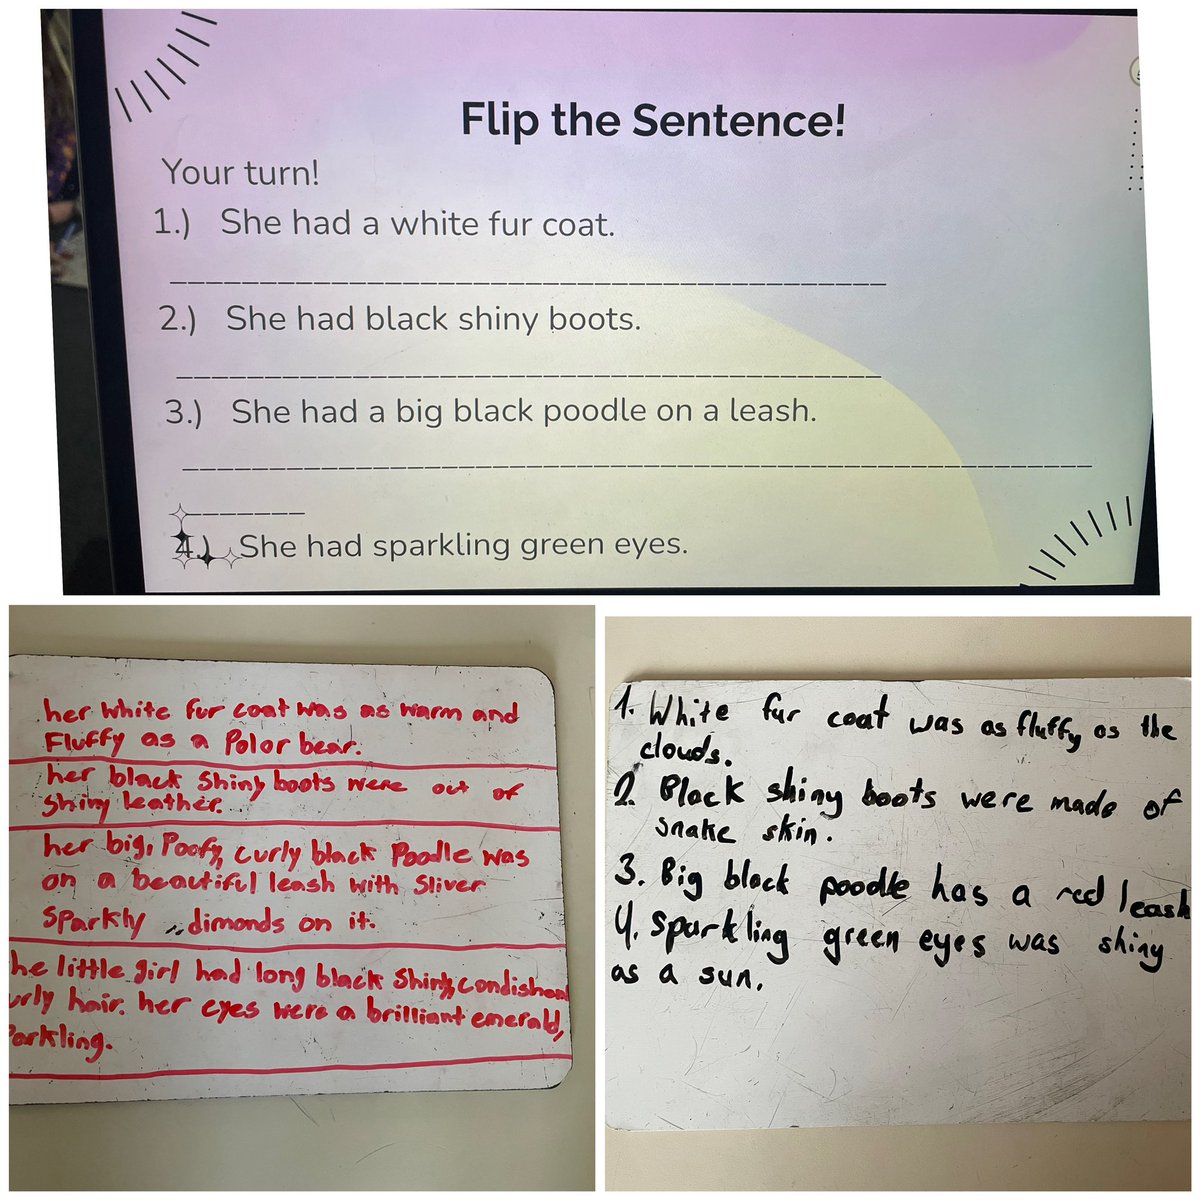 Flip the Sentence!
Your turn!
1.) She had a white fur coat.
2.) She had black shiny boots.
3.) She had a big black poodle on a leash.
4.) She had sparkling green eyes.
her white fur coat was as warm and
Fluffy as a Polor bear.
her black Shiny boots were out of
Shiny leather.
her big, Poofy, curly black Poodle was
on a beautiful leash with Sliver
Sparkly dimonds on it.
he little girl had long black Shiny, condishen
urly hair. her eyes were a brilliant emerald,
Parkling.
1. White fur coat was as fluffy as the
clouds.
2. Black shiny boots were made of
snake skin.
3. Big black poodle has a red leash
4. Sparkling green eyes was shiny
as a sun.